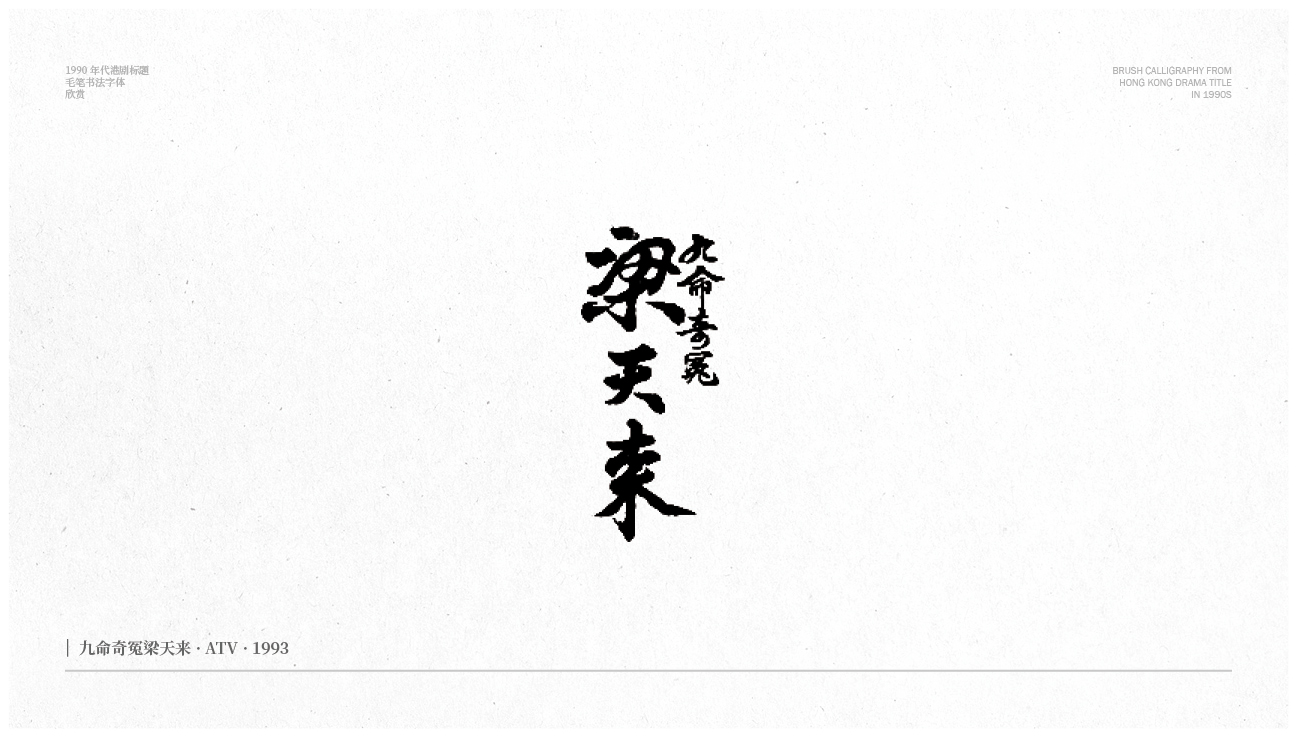 1990 年代港剧标题
毛笔书法字体
欣赏
BRUSH CALLIGRAPHY FROM
HONG KONG DRAMA TITLE
IN 1990S
九命奇冤
梁天来
九命奇冤梁天来 · ATV · 1993